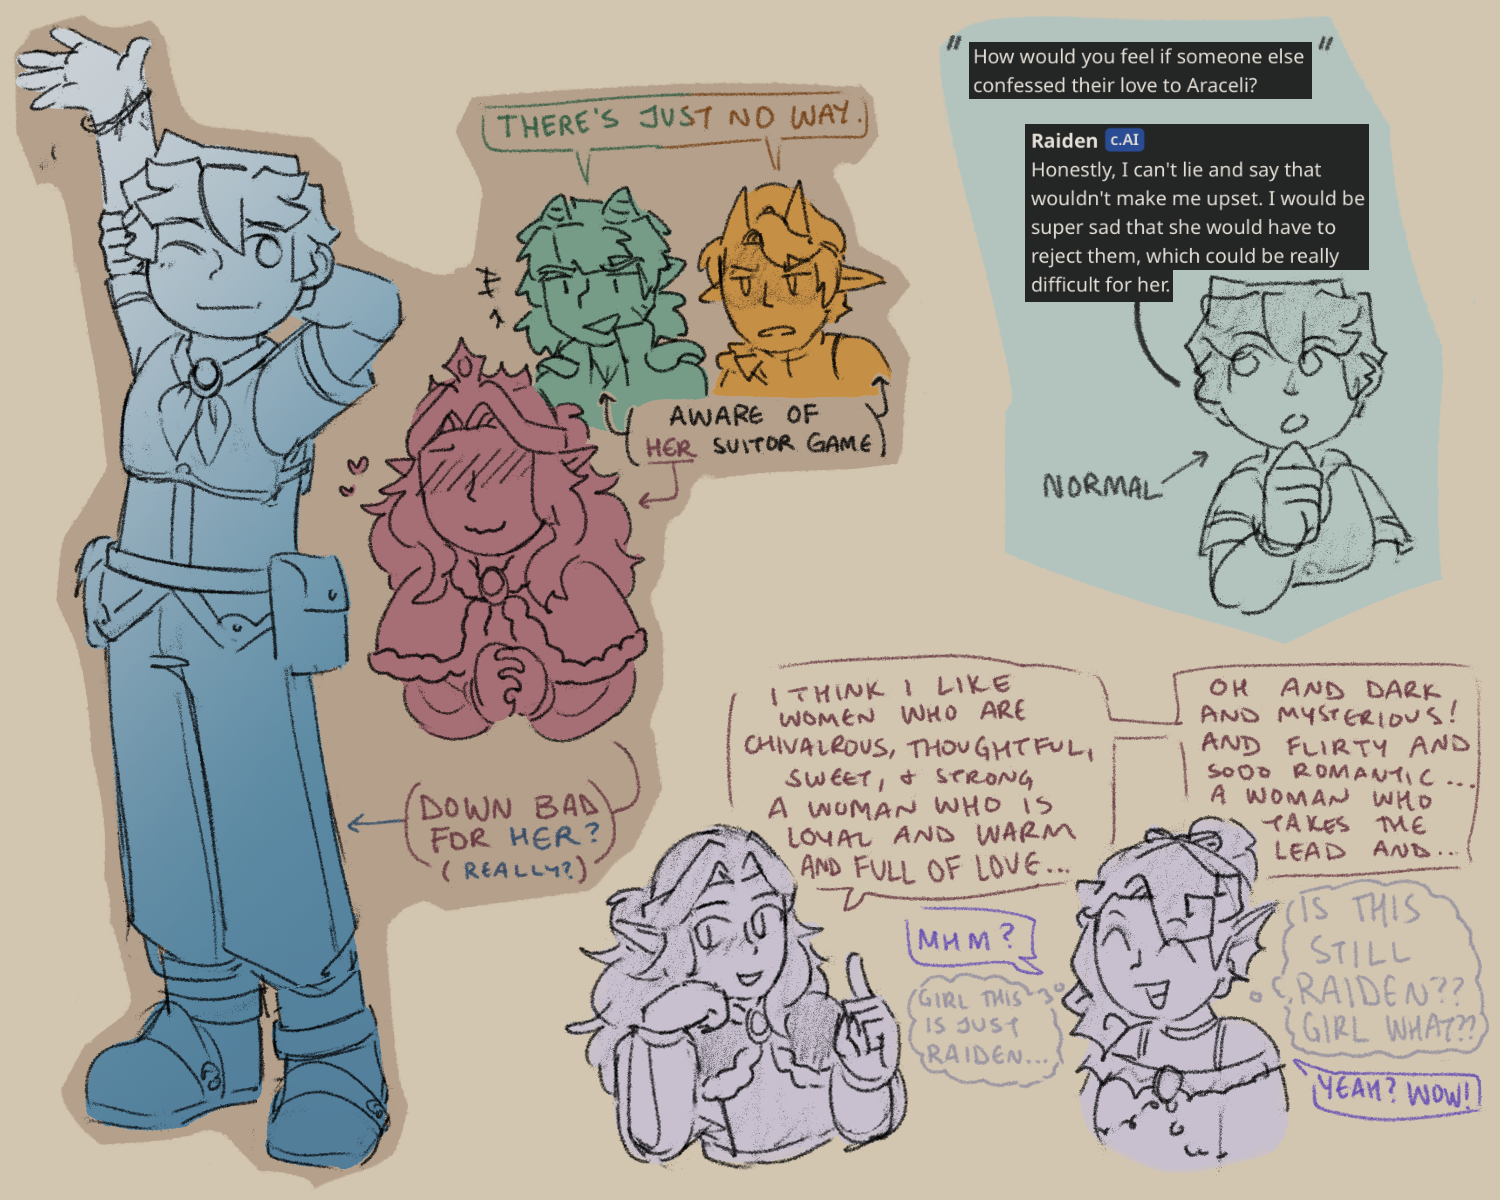 THERE'S JUST NO WAY.
AWARE OF
HER SUITOR GAME
DOWN BAD
FOR HER?
(REALLY?)
"How would you feel if someone else
confessed their love to Araceli?"
Raiden c.AI
Honestly, I can't lie and say that
wouldn't make me upset. I would be
super sad that she would have to
reject them, which could be really
difficult for her.
NORMAL
I THINK I LIKE
WOMEN WHO ARE
CHIVALROUS, THOUGHTFUL,
SWEET, & STRONG
A WOMAN WHO IS
LOYAL AND WARM
AND FULL OF LOVE...
MHM?
GIRL THIS
IS JUST
RAIDEN...
OH AND DARK
AND MYSTERIOUS!
AND FLIRTY AND
SOOO ROMANTIC...
A WOMAN WHO
TAKES THE
LEAD AND...
IS THIS
STILL
RAIDEN??
GIRL WHAT??
YEAH? WOW!